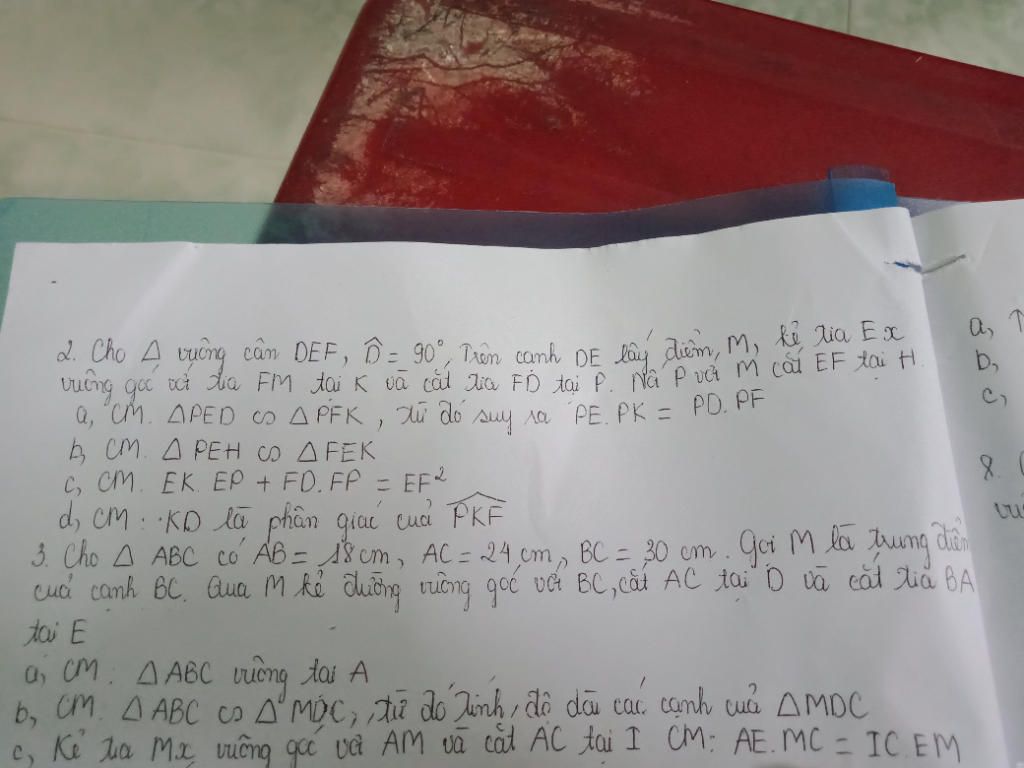 2. Cho △ vuông cân DEF, D̂ = 90°, Trên cạnh DE lấy điểm, M, kẻ tia Ex
vuông góc với tia FM tại K và cắt tia FD tại P. Nối P với M cắt EF tại H.
a, CM. △PED ∽ △PFK, từ đó suy ra PE.PK = PD.PF
b, CM. △ PEH ∽ △FEK
c, CM. EK. EP + FD.FP = EF²
d, CM: KD là phân giác của P̂KF
3. Cho △ ABC có AB = 18cm, AC = 24cm, BC = 30 cm. Gọi M là trung điểm
của cạnh BC. Qua M kẻ đường vuông góc với BC, cắt AC tại D và cắt tia BA
tại E
a, CM: △ABC vuông tại A
b, CM. △ABC ∽ △MDC, từ đó tính, độ dài các cạnh của △MDC
c, Kẻ tia Mx vuông góc với AM và cắt AC tại I CM: AE.MC = IC.EM
a,
b,
c,
8.